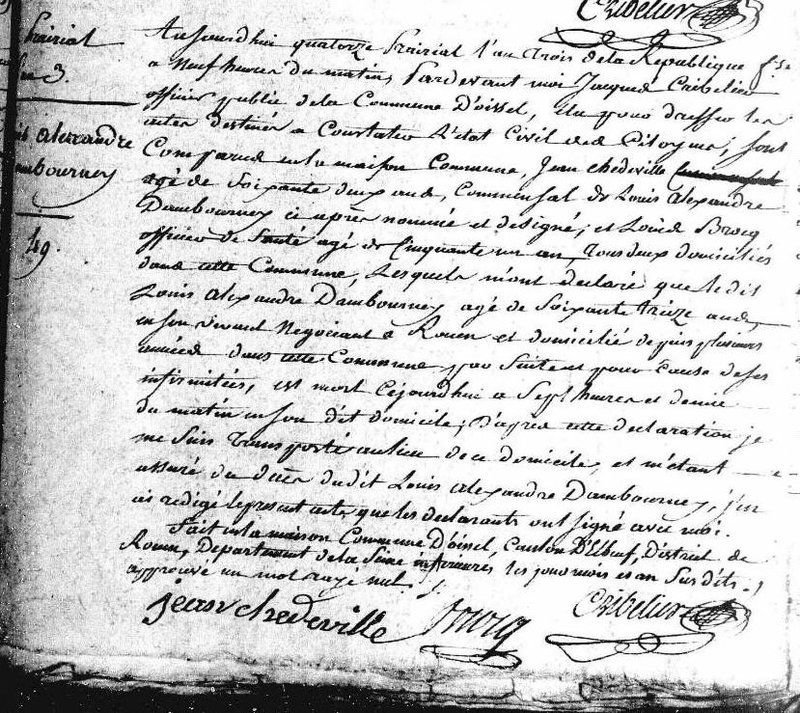 Cribelier
Prairial
an 3.
Alexandre
Dambourney
49
Aujourdhui quatorze Prairial l'an trois de la République fse
a Neuf heures du matin, Pardevant moi Jacques Cribelier
officier public de la Commune D'oissel, élu pour dresser les
actes destinés a Constater L'état Civil des Citoyens, sont
Comparus en la maison Commune, Jean chedeville
agé de Soixante deux ans, Commensal de Louis alexandre
Dambourney ci après nommé et designé; et Louis Brocq
officier de Santé agé de Cinquante un an, tous deux domiciliés
dans cette Commune, Lesquels m'ont declaré que ledit
Louis Alexandre Dambourney agé de Soixante treize ans,
en son vivant Negociant a Rouen et domicilié depuis plusieurs
années dans cette Commune par Suite et pour Cause de ses
infirmitées, est mort Cejourdhui a Sept heures et demie
du matin en son dit domicile; D'après cette declaration je
me Suis transporté au lieu de ce domicile, et m'étant
assuré du décès dudit Louis Alexandre Dambourney, j'en
ai redigé le present acte, que les declarants ont signé avec moi.
Fait en la maison Commune D'oissel, Canton D'Elbeuf, District de
Rouen, Departement de la Seine inferieure les jour mois et an Sus dits.
approuvé un mot rayé nul
jean chedeville Brocq Cribelier